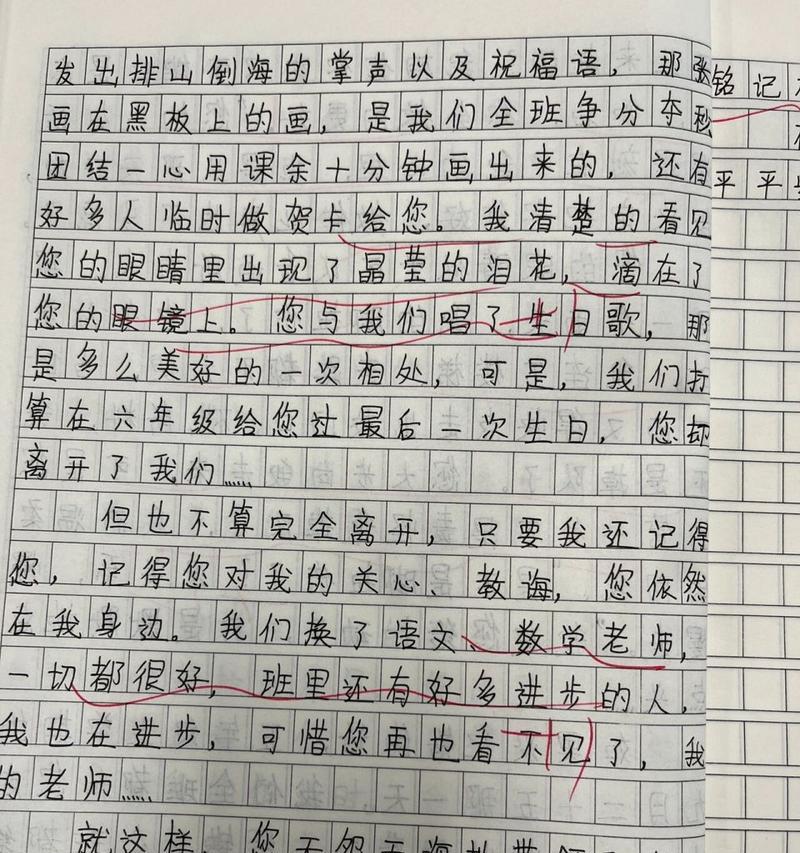 发出排山倒海的掌声以及祝福语，那张
画在黑板上的画，是我们全班争分夺秒
团结一心用课余十分钟画出来的，还有
好多人临时做贺卡给您。我清楚的看见
您的眼睛里出现了晶莹的泪花，滴在了
您的眼镜上。您与我们唱了生日歌，那
是多么美好的一次相处，可是，我们打
算在六年级给您过最后一次生日，您却
离开了我们……
但也不算完全离开，只要我还记得
您，记得您对我的关心、教诲，您依然
在我身边。我们换了语文、数学老师，
一切都很好，班里还有好多进步的人，
我也在进步，可惜您再也看不见了，我
的老师……
就这样，您无怨无悔地
铭记
平平